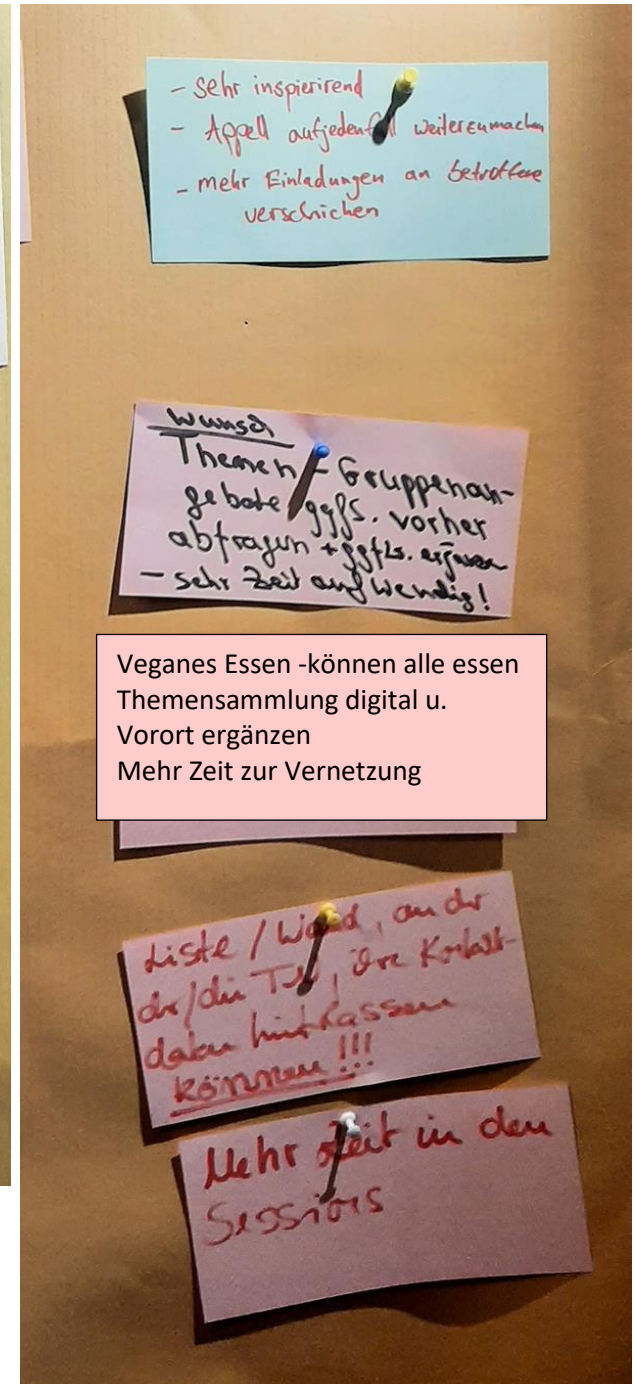 - sehr inspierirend
- Appell aufjedenfall weiterzumachen
- mehr Einladungen an betroffene
verschicken
Wunsch
Themen - Gruppenan-
gebote ggfs. vorher
abfragen + ggfls.
- sehr Zeit aufwendig!
Veganes Essen -können alle essen
Themensammlung digital u.
Vorort ergänzen
Mehr Zeit zur Vernetzung
Liste / Wand, an der
der/die TN, ihre Kontakt-
daten hinterlassen
können!!!
Mehr Zeit in den
Sessions